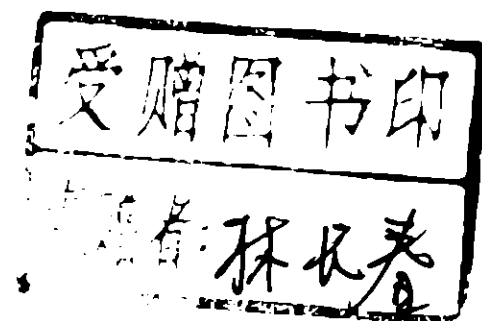 受赠图书印
赠者:林长春